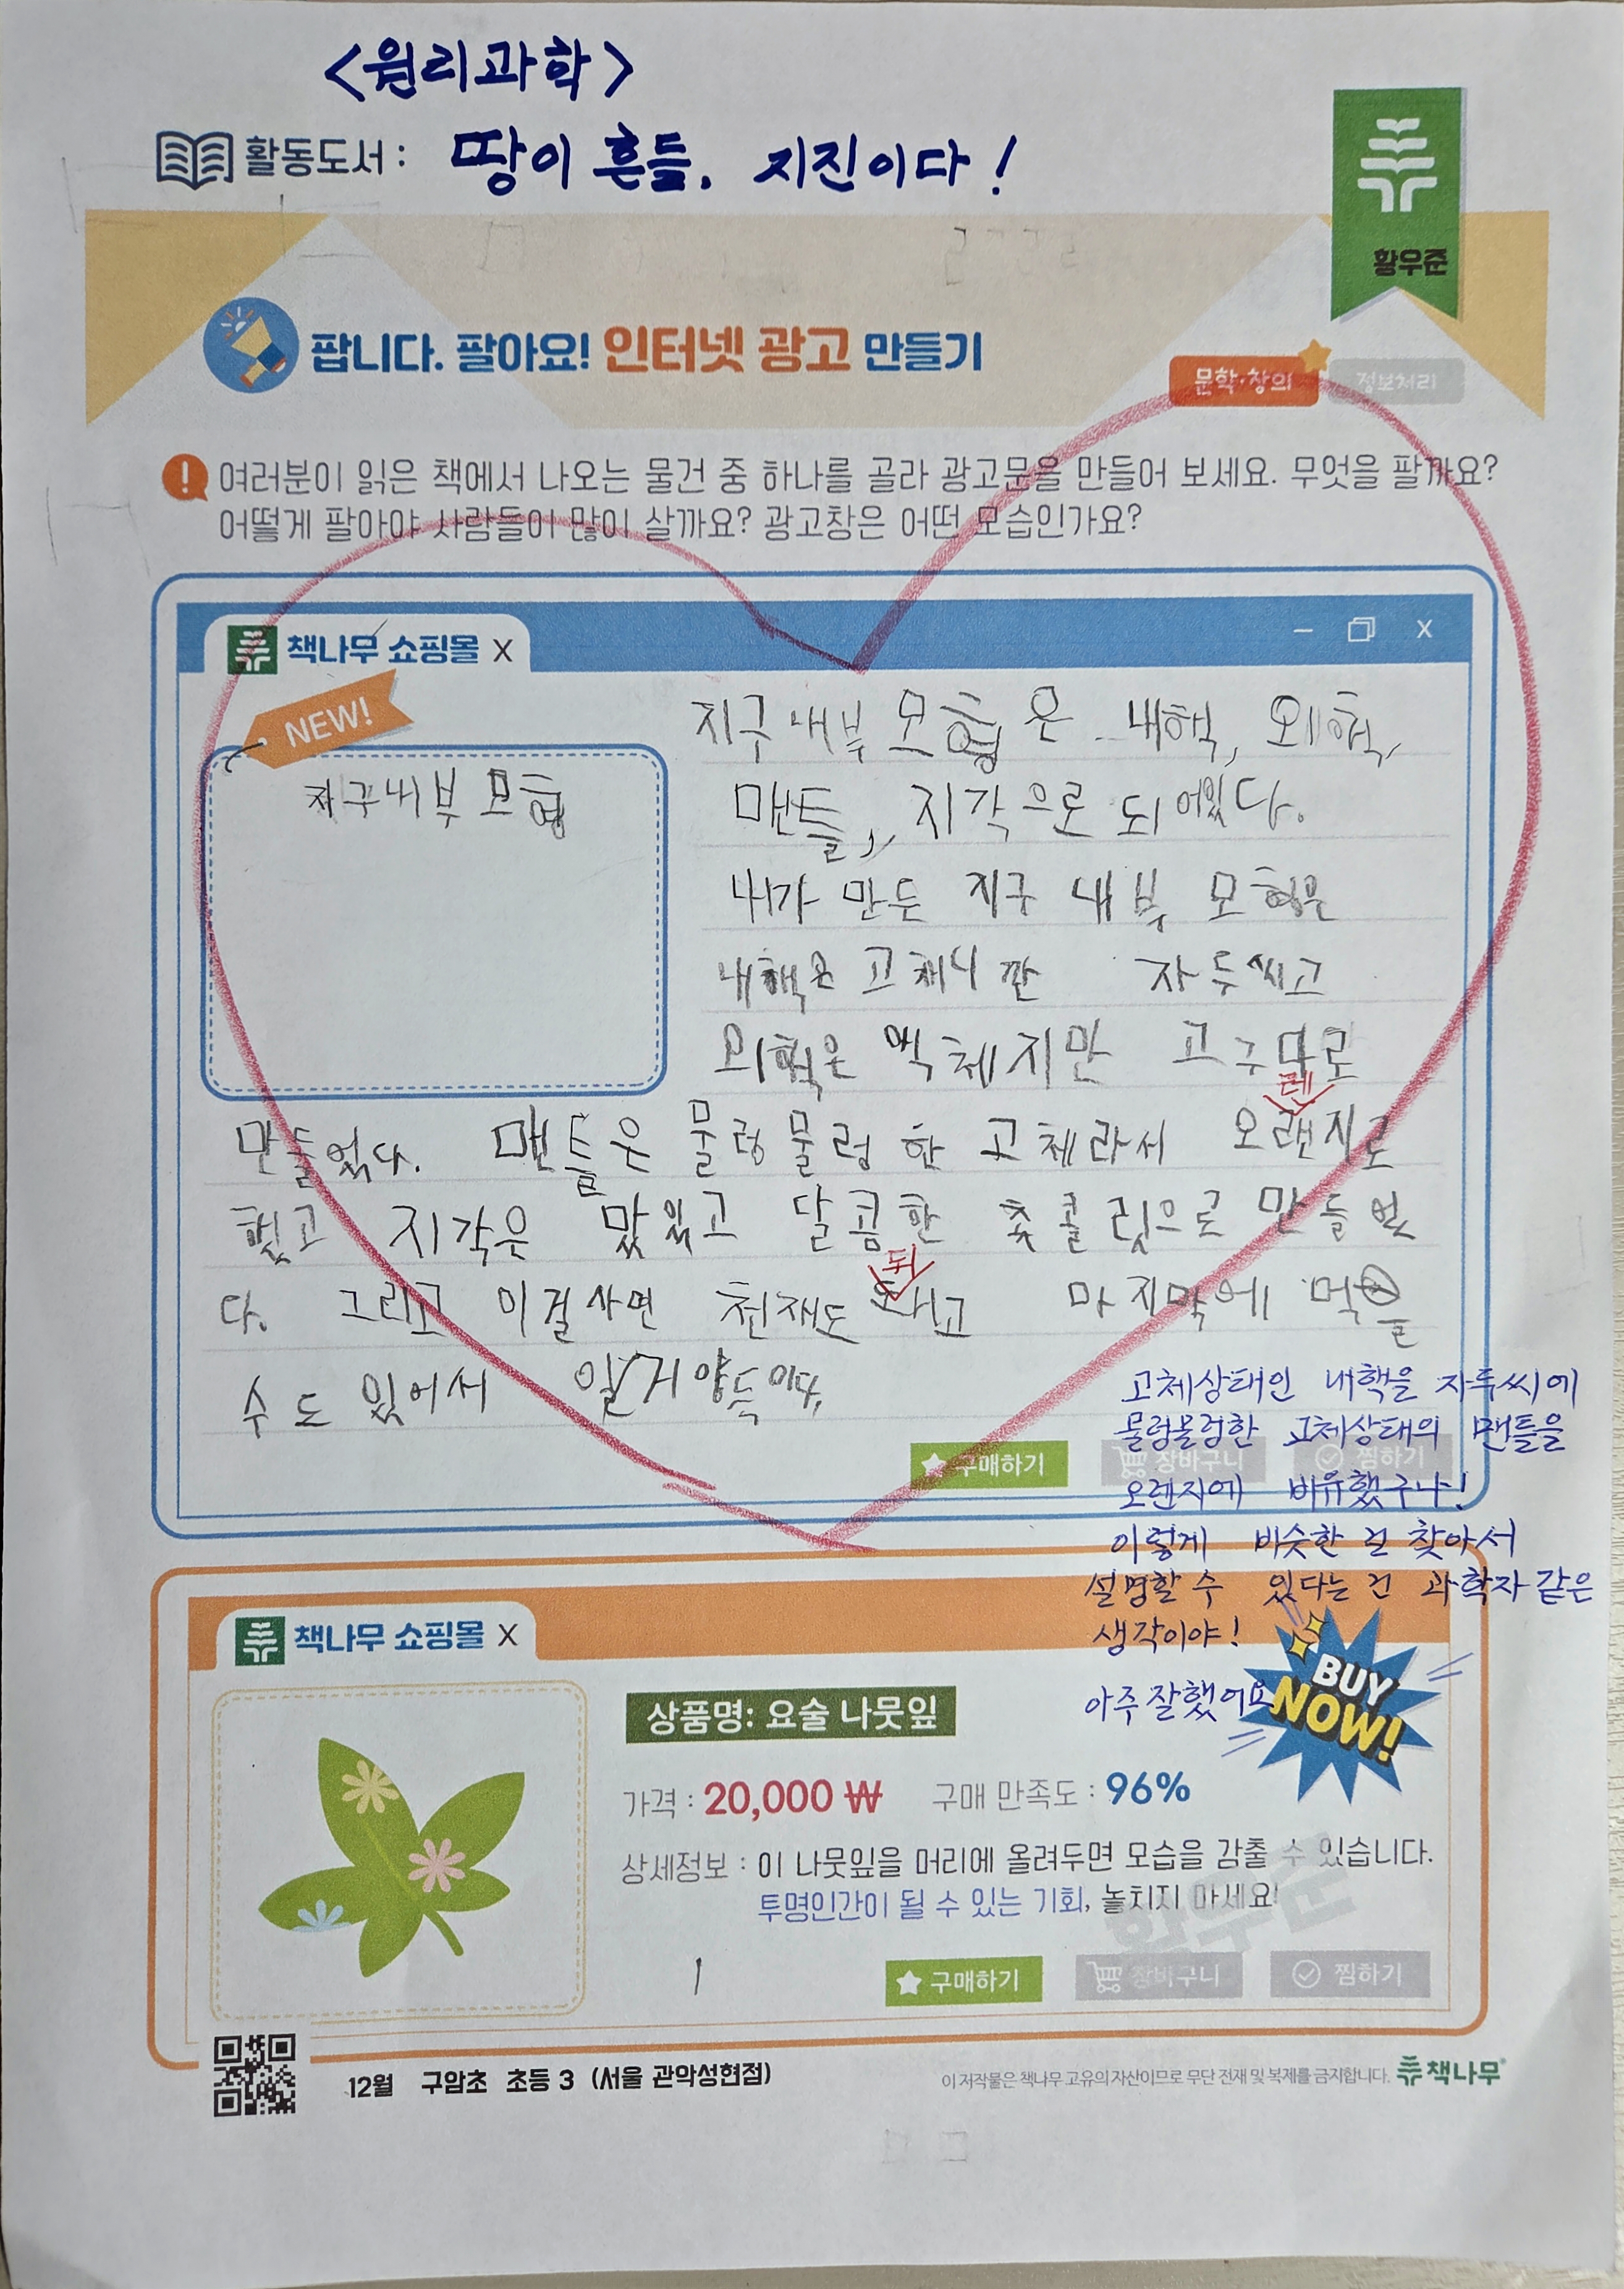 <원리과학>
활동도서 : 땅이 흔들. 지진이다!
황우준
팝니다. 팔아요! 인터넷 광고 만들기
문학·창의 정보처리
여러분이 읽은 책에서 나오는 물건 중 하나를 골라 광고문을 만들어 보세요. 무엇을 팔까요?
어떻게 팔아야 사람들이 많이 살까요? 광고창은 어떤 모습인가요?
책나무 쇼핑몰 X
NEW!
지구 내부 모형
지구 내부 모형은 내핵, 외핵,
맨틀, 지각으로 되어있다.
내가 만든 지구 내부 모형은
내핵은 고체니깐 자두씨고
외핵은 액체지만 고구마로
만들었다. 맨틀은 물렁물렁한 고체라서 오랜지로
렌
했고 지각은 맜있고 달콤한 촟콜릿으로 만들었
다. 그리고 이걸사면 천재도 되고 마지막에 먹을
수도 있어서 일거양득이다.
고체상태인 내핵을 자두씨에
물렁물렁한 고체상태의 맨틀을
오렌지에 비유했구나!
이렇게 비슷한 걸 찾아서
설명할 수 있다는 건 과학자 같은
생각이야!
아주 잘했어요
구매하기 장바구니 찜하기
책나무 쇼핑몰 X
BUY
NOW!
상품명: 요술 나뭇잎
가격 : 20,000 ₩ 구매 만족도 : 96%
상세정보 : 이 나뭇잎을 머리에 올려두면 모습을 감출 수 있습니다.
투명인간이 될 수 있는 기회, 놓치지 마세요!
황우준
구매하기 장바구니 찜하기
12월 구암초 초등 3 (서울 관악성현점)
이 저작물은 책나무 고유의 자산이므로 무단 전재 및 복제를 금지합니다. 책나무